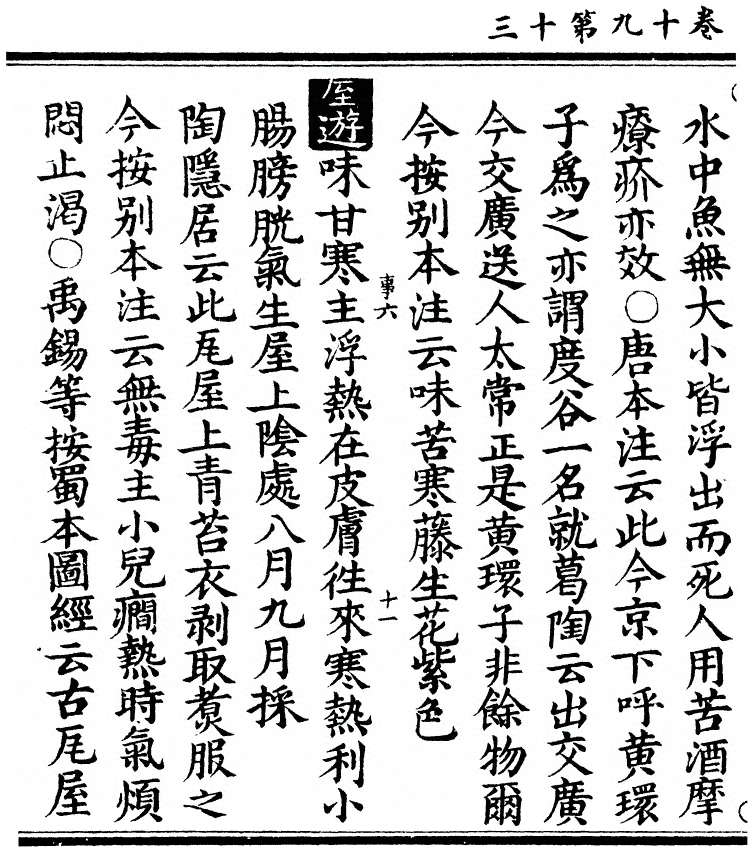 三十第九十卷
水中魚無大小皆浮出而死人用苦酒摩
療疥亦效〇唐本注云此今京下呼黄環
子爲之亦謂度谷一名就葛陶云出交廣
今交廣送人太常正是黄環子非餘物爾
今按别本注云味苦寒藤生花紫色
屋遊味甘寒主浮熱在皮膚徃來寒熱利小
事六
十一
腸膀胱氣生屋上陰處八月九月採
陶隱居云此瓦屋上青苔衣剥取煑服之
今按别本注云無毒主小兒癇熱時氣煩
悶止渴〇禹錫等按蜀本圖經云古瓦屋